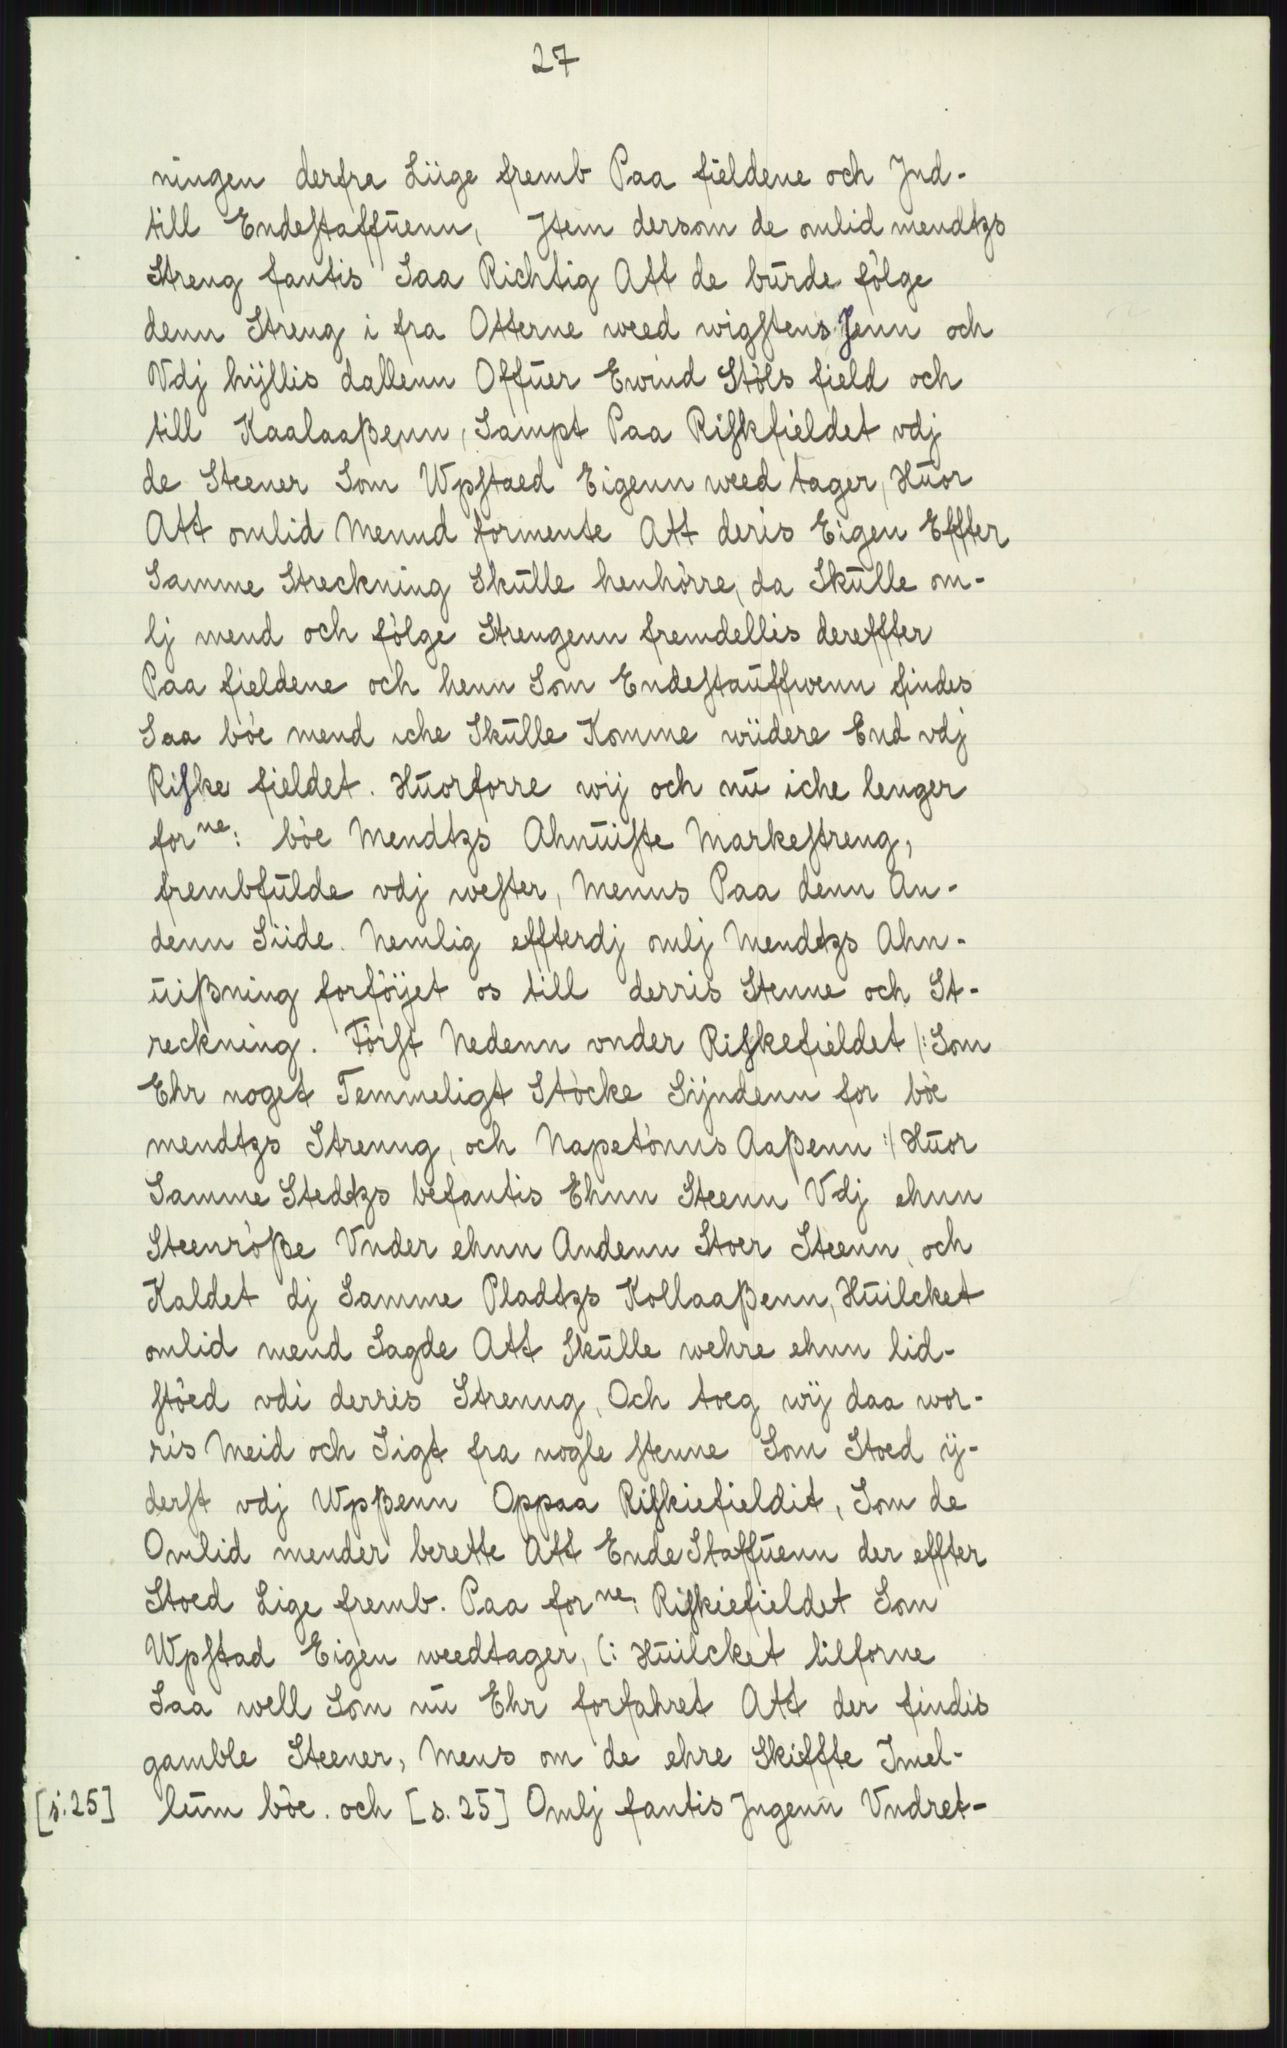 27
ningen derfra Liige fremb Paa fieldene och Jnd-
till Endestaffūenn, Jtem dersom de omlid mendtzs
Streng fantis Saa Richtig Att de būrde følge
denn Streng i fra Otterne weed wigstens Jenn och
Vdj hÿllis dallenn Offūer Ewind Støls field och
till Kaalaaßenn, Sampt Paa Riskfieldet vdj
de Steener Som Wpstaed Eigenn weed tager, Hūor
Att omlid Mennd formente Att deris Eigen Effter
Samme Streckning Skūlle henhørre, da Skūlle om-
lj mend och følge Strengenn fremdellis dereffter
Paa fieldene och henn Som Endestaūffwenn findes
Saa bøe mend iche Skūlle Komme wiidere End vdj
Riske fieldet. Hūorforre wij och nū iche lenger
forne: bøe Mendtzs Ahnūiste Markestreng,
frembfūlde vdj wester, Menns Paa denn An-
denn Siide. Nemlig effterdj omlj Mendtzs Ahn-
ūißning forføÿet os till derris Stenne och St-
reckning. Først Nedenn vnder Riskefieldet /: Som
Ehr noget Temmeligt Støcke Sÿndenn for bøe
mendtzs Strenng, och Napetønns Aaßenn :/ Hūor
Samme Stedtzs befantis Ehnn Steenn Vdj ehnn
Steenrøße Vnder ehnn Andenn Stoer Steenn, och
Kaldet dj Samme Pladtzs Kollaaßenn, Hūilcket
omlid mend Sagde Att Skūlle wehre ehnn lid-
støed vdi derris Strenng, Och toeg wÿ daa wor-
ris Meid och Sigt fra nogle stenne Som Stoed ÿ-
derst vdj Wpßenn Oppaa Riskiefieldit, Som de
Omlid mender berette Att Ende Staffūenn der effter
Stoed Lige fremb. Paa forne: Riskiefieldet Som
Wpstad Eigen weedtager, (: Hūilcket tilforne
Saa well Som nū Ehr forfahret Att der findis
gamble Steener, Mens om de ehre Skiffte Imel-
[s. 25] lūm bøe. och [s. 25] Omlj fantis Jngenn Vndret-